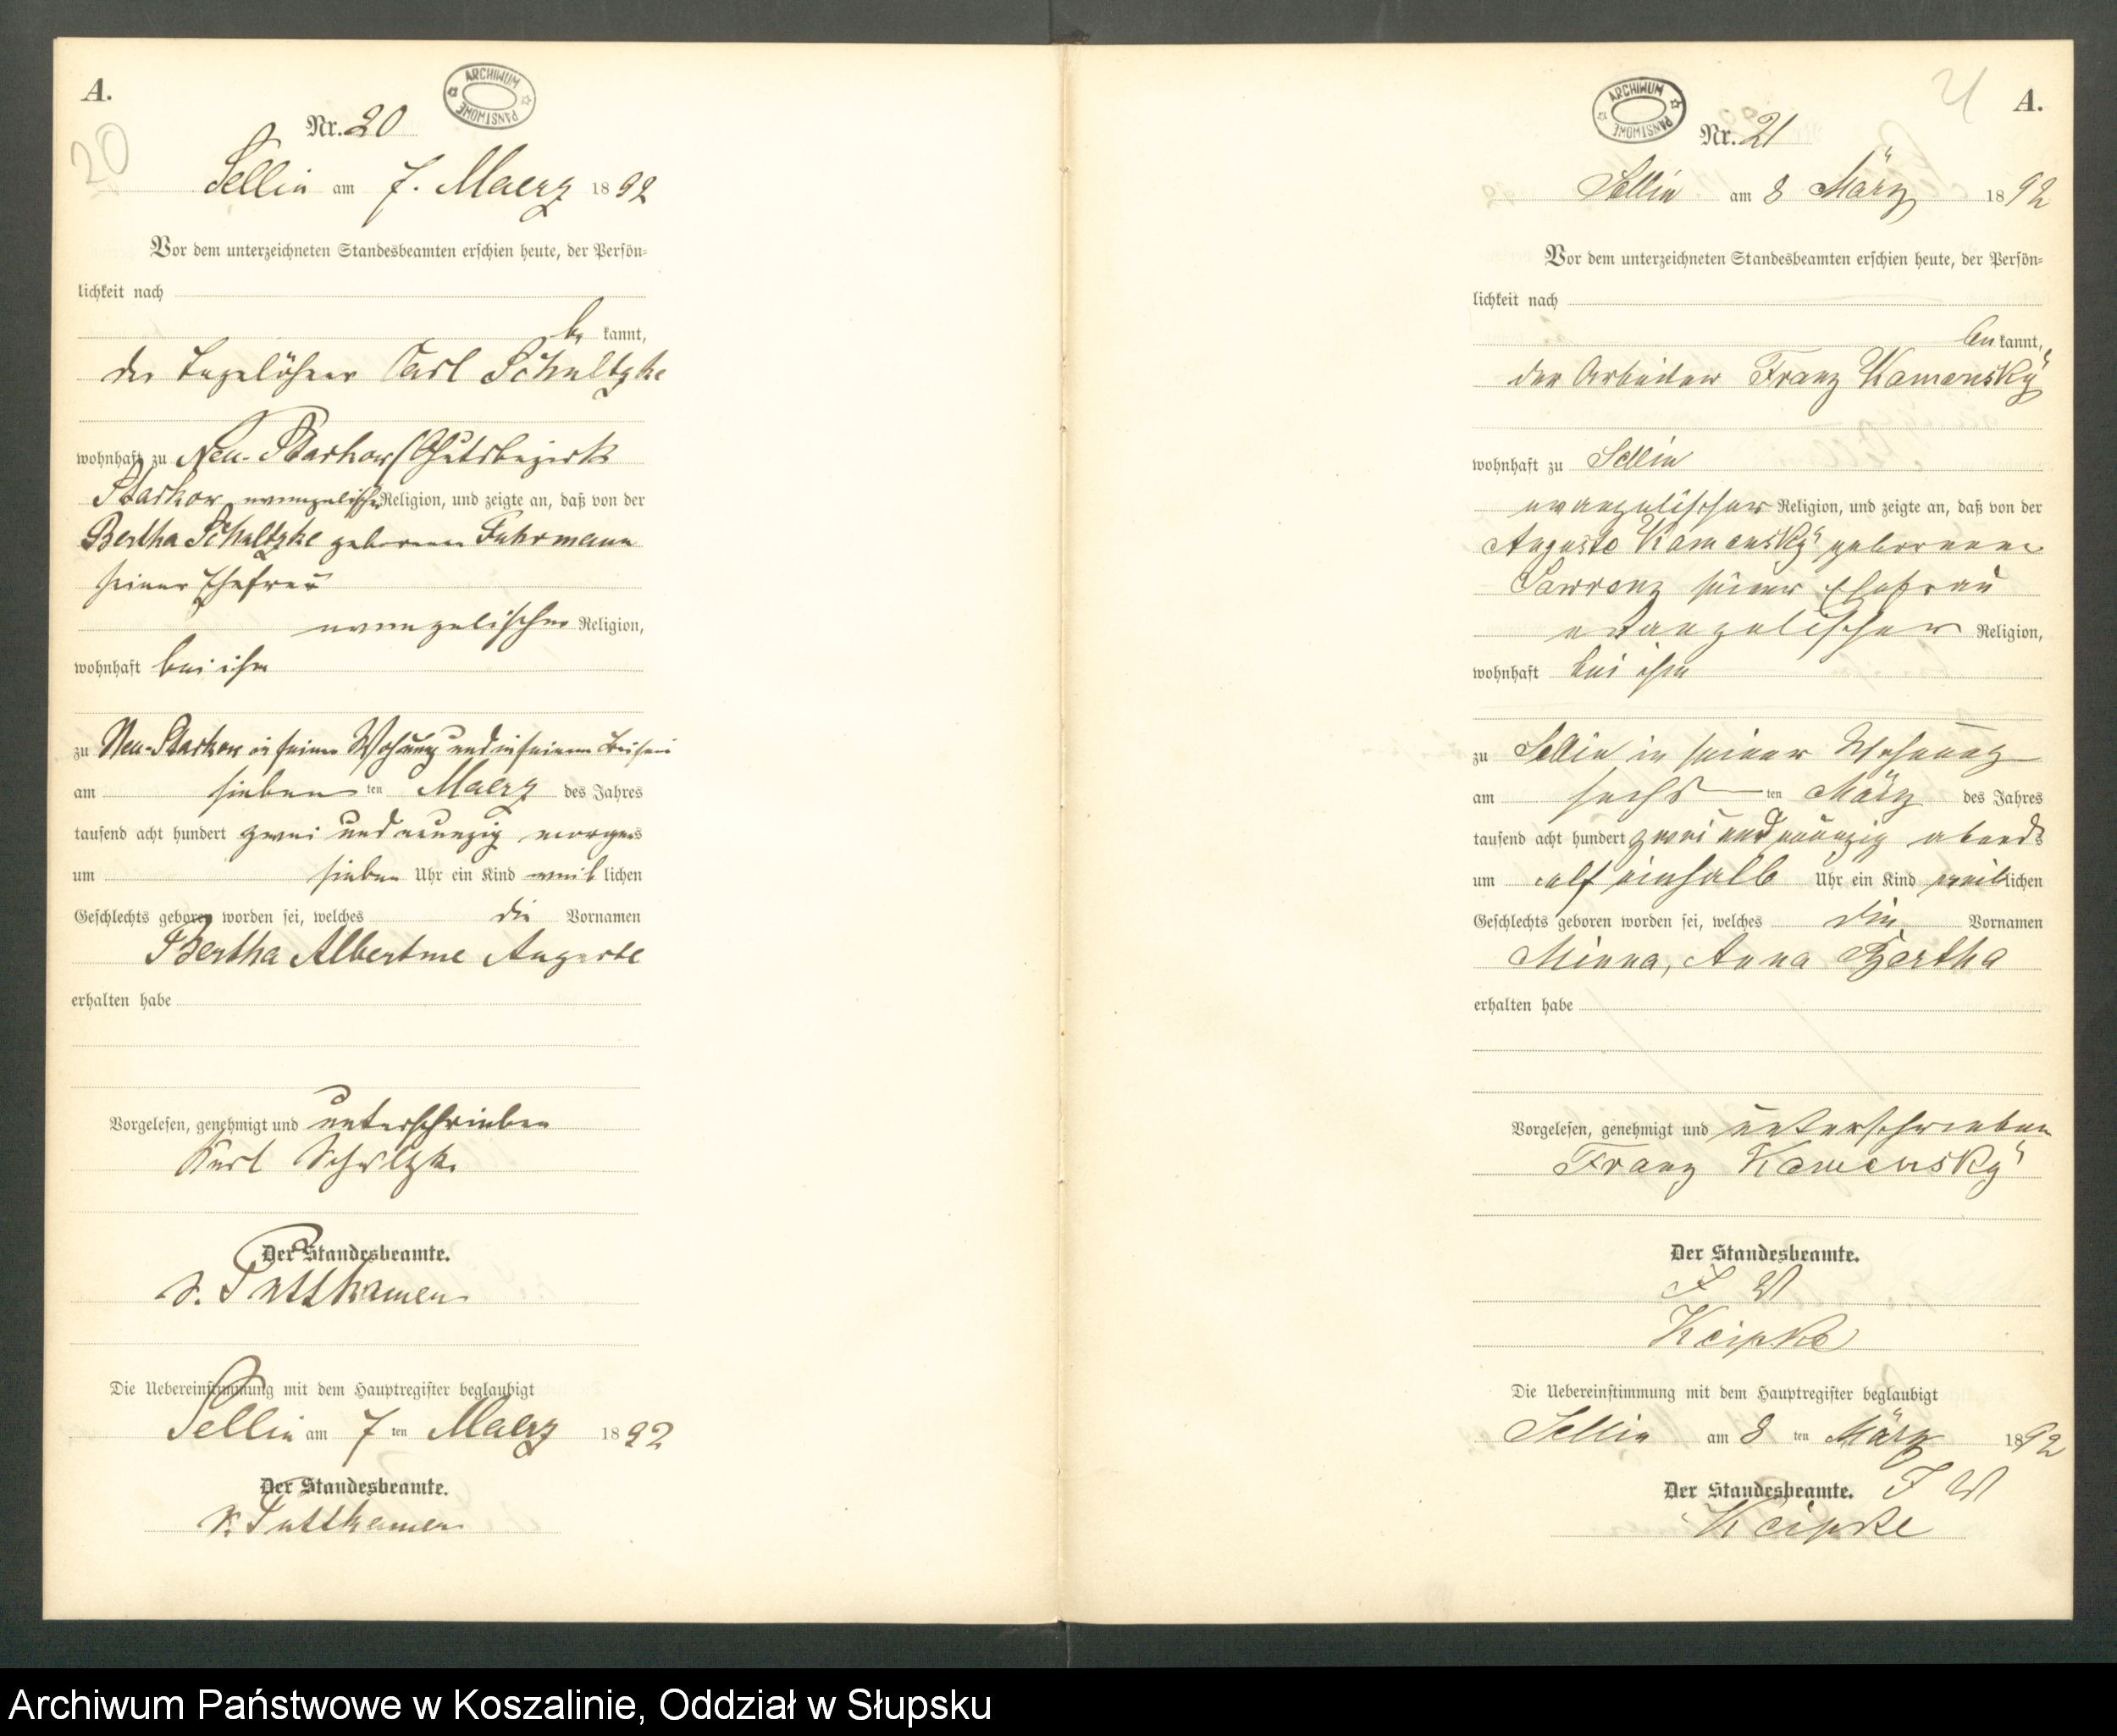 A.
20
ARCHIWUM PAŃSTWOWE
Nr. 20
Sellin am 7. Maerz 1892
Vor dem unterzeichneten Standesbeamten erschien heute, der Persön-
lichkeit nach
be kannt,
der Tagelöhner Carl Schultzke
wohnhaft zu Neu-Starkow (Gutsbezirk
Starkow evangelischer Religion, und zeigte an, daß von der
Bertha Schultzke geborenen Fuhrmann
seiner Ehefrau
evangelischer Religion,
wohnhaft bei ihm
zu Neu-Starkow in seiner Wohnung und in seinem Beisein
am sieben ten Maerz des Jahres
tausend acht hundert zwei und neunzig morgens
um sieben Uhr ein Kind weib lichen
Geschlechts geboren worden sei, welches die Vornamen
Bertha Albertine Auguste
erhalten habe
Vorgelesen, genehmigt und unterschrieben
Karl Schultzke
Der Standesbeamte.
v. Puttkamer
Die Uebereinstimmung mit dem Hauptregister beglaubigt
Sellin am 7 ten Maerz 1892
Der Standesbeamte.
v. Puttkamer
21
A.
ARCHIWUM PAŃSTWOWE
Nr. 21
Sellin am 8 März 1892
Vor dem unterzeichneten Standesbeamten erschien heute, der Persön-
lichkeit nach
be kannt,
der Arbeiter Franz Kamensky
wohnhaft zu Sellin
evangelischer Religion, und zeigte an, daß von der
Auguste Kamensky geborenen
Lawrenz seiner Ehefrau
evangelischer Religion,
wohnhaft bei ihm
zu Sellin in seiner Wohnung
am sechs ten März des Jahres
tausend acht hundert zwei und neunzig abends
um elf einhalb Uhr ein Kind weib lichen
Geschlechts geboren worden sei, welches die Vornamen
Minna, Anna Bertha
erhalten habe
Vorgelesen, genehmigt und unterschrieben
Franz Kamensky
Der Standesbeamte.
I V
Keipke
Die Uebereinstimmung mit dem Hauptregister beglaubigt
Sellin am 8 ten März 1892
Der Standesbeamte. I V
Keipke
Archiwum Państwowe w Koszalinie, Oddział w Słupsku